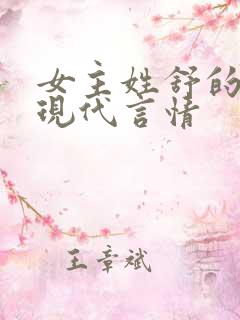 女主姓舒的
現代言情
王章斌